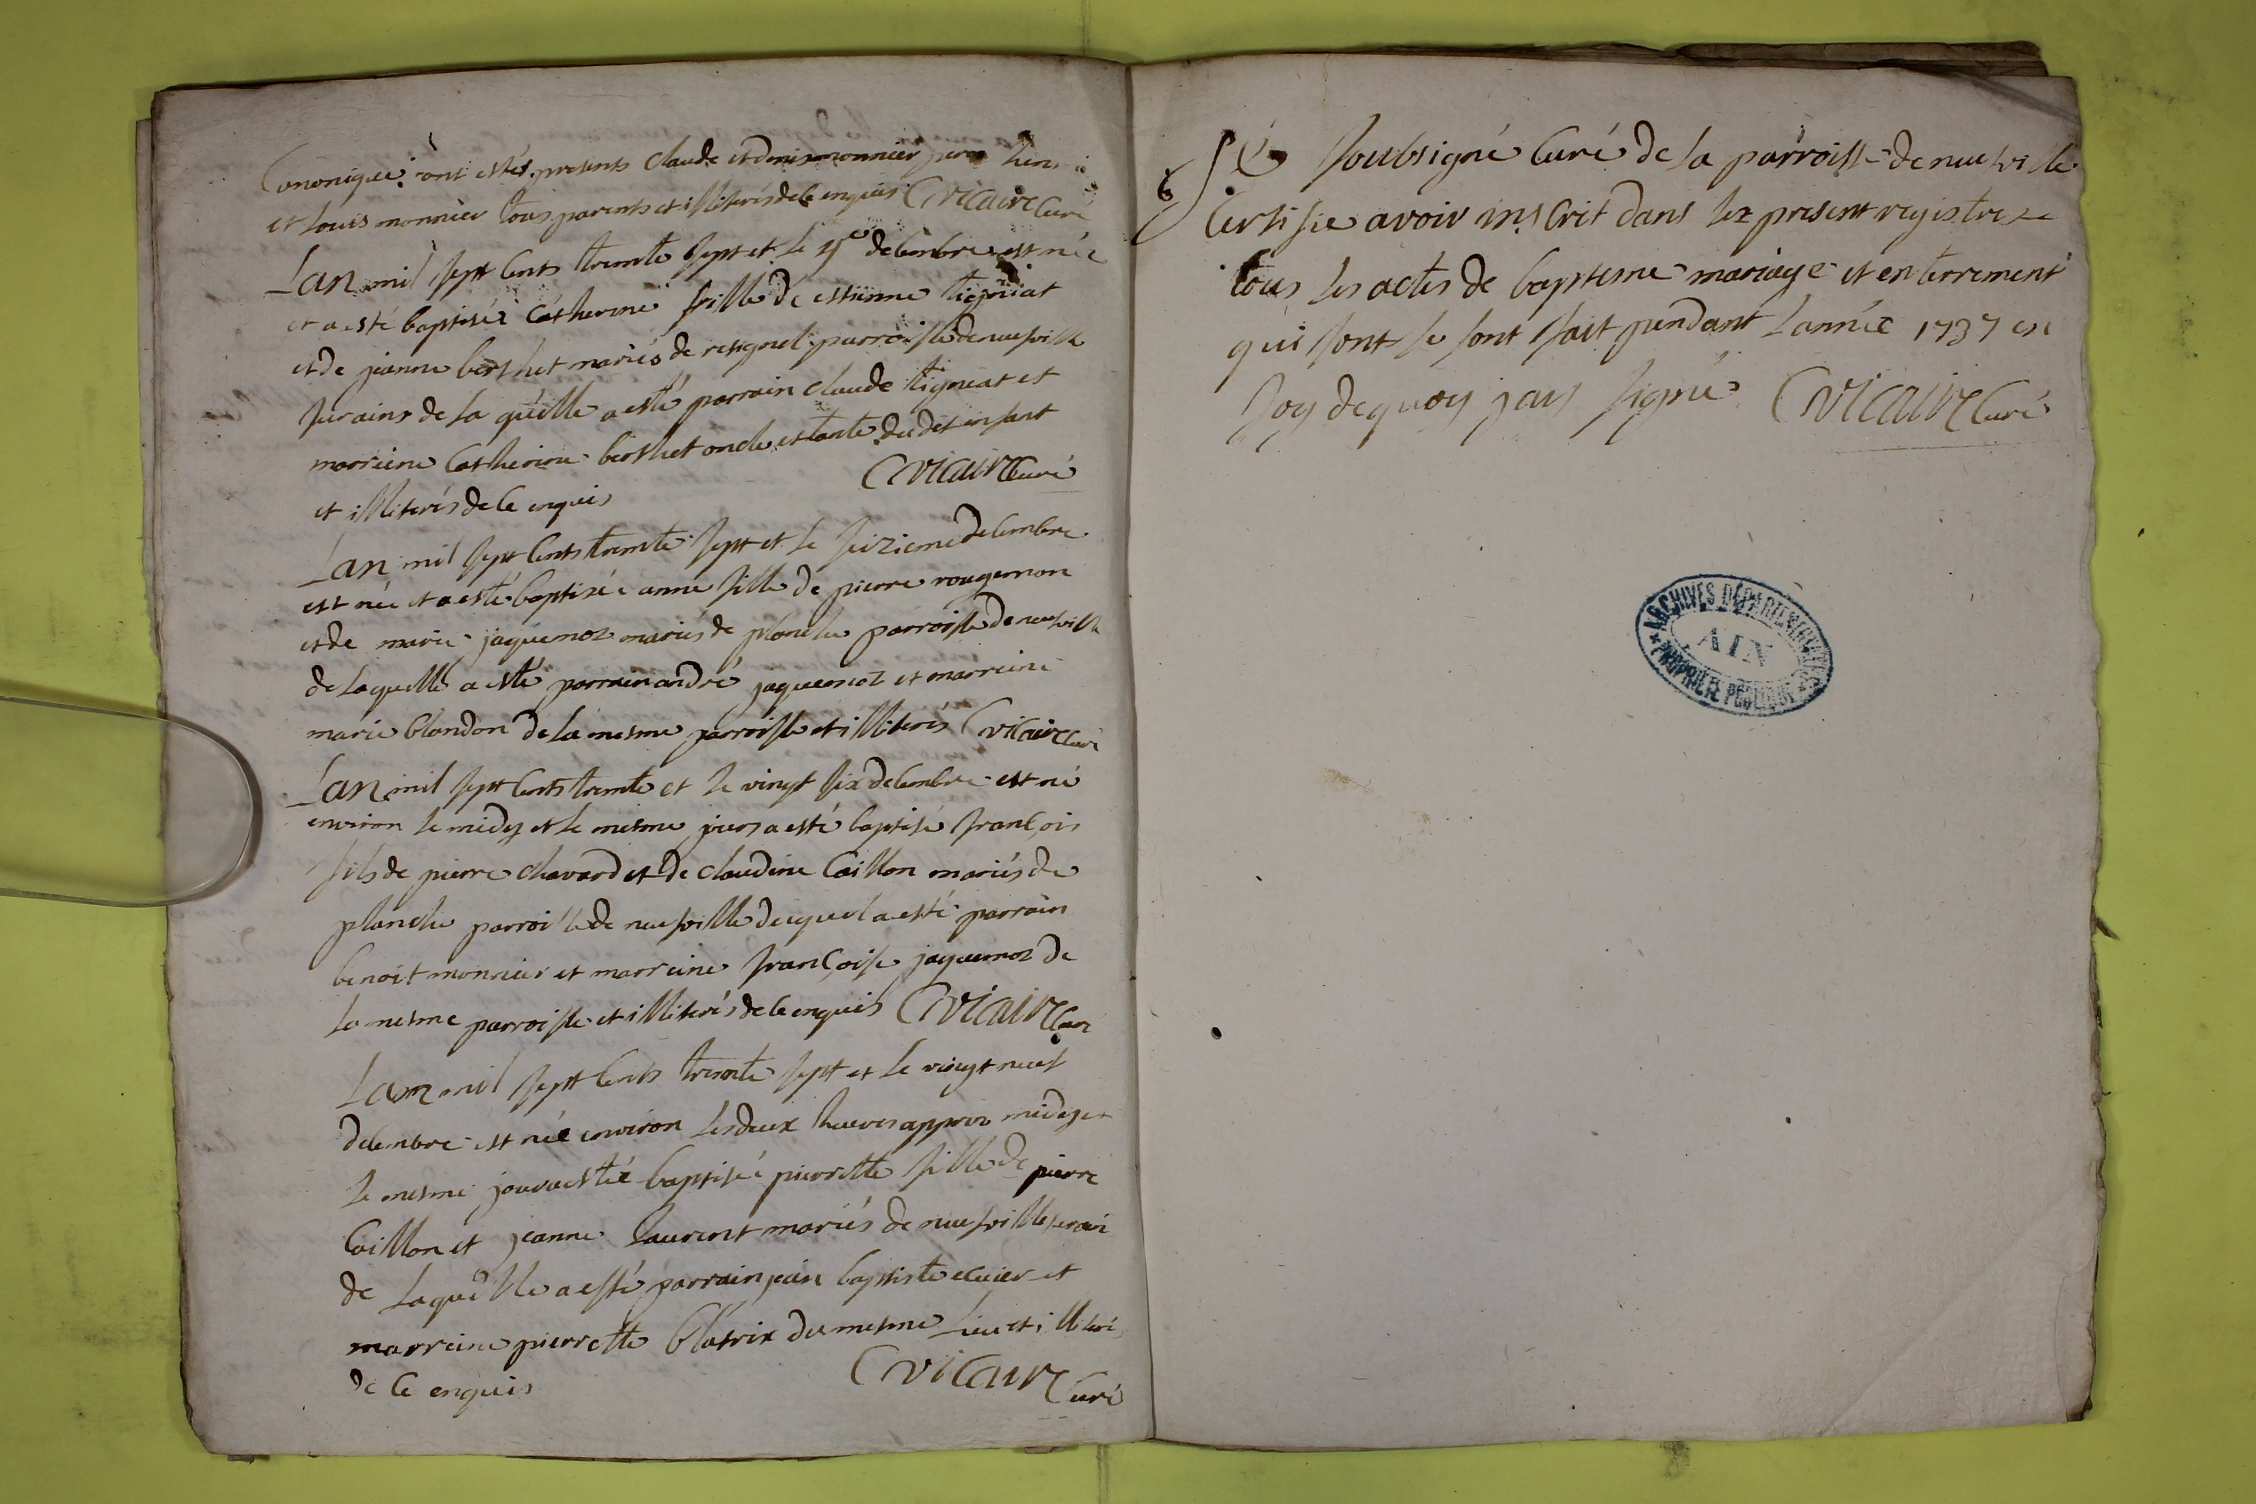 Canonique ont estés presents claude et denis monnier
et louis monnier tous parents et illiterés de ce enquis C vicaire Curé
Lan mil sept Cents trente sept et le 15e decembre est née
et a esté baptisée Catherine fille de estienne tignat
et de jeanne berthet mariés de resignel parroisse de neufville
surains de la quelle a esté parrain claude tigneat et
marreine Catherine berthet oncle et tante dudit enfant
et illiterés de Ce enquis C vicaire Curé
Lan mil sept Cents trente sept et le seizieme decembre
est née et a esté baptisée anne fille de pierre rougemon
et de marie jaquemoz mariés de planche parroisse de neufville
de laquelle a esté parrain andré jaquemoz et marreine
marie blondon de la mesme parroisse et illiterés C vicaire Curé
Lan mil sept Cents trente et le vingt six decembre est né
environ le midy et le mesme jour a esté baptisé francois
fils de pierre chavard et de claudine Caillon mariés de
planche parroisse de neufville duquel a esté parrain
benoit monnier et marreine francoise jaquemoz de
la mesme parroisse et illiterés de ce enquis C vicaire Curé
Lan mil sept Cents trente sept et le vingt neuf
decembre est née environ les deux heures appres midy et
le mesme jour a estée baptisée pierrette fille de pierre
Caillon et jeanne laurent mariés de neufville
de laquelle a esté parrain jean baptiste ecuier et
marreine pierrette blatrix du mesme lieu et illiteré
de Ce enquis C vicaire Curé
Je soubsigné Curé de la parroisse de neufville
Certifie avoir inscrit dans le present registre
tous les actes de baptesme mariage et enterrement
qui sont se sont fait pendant l'année 1737 en
foy de quoy jay signé C vicaire Curé
ARCHIVES DÉPARTEMENTALES
AIN
PROPRIÉTÉ PUBLIQUE